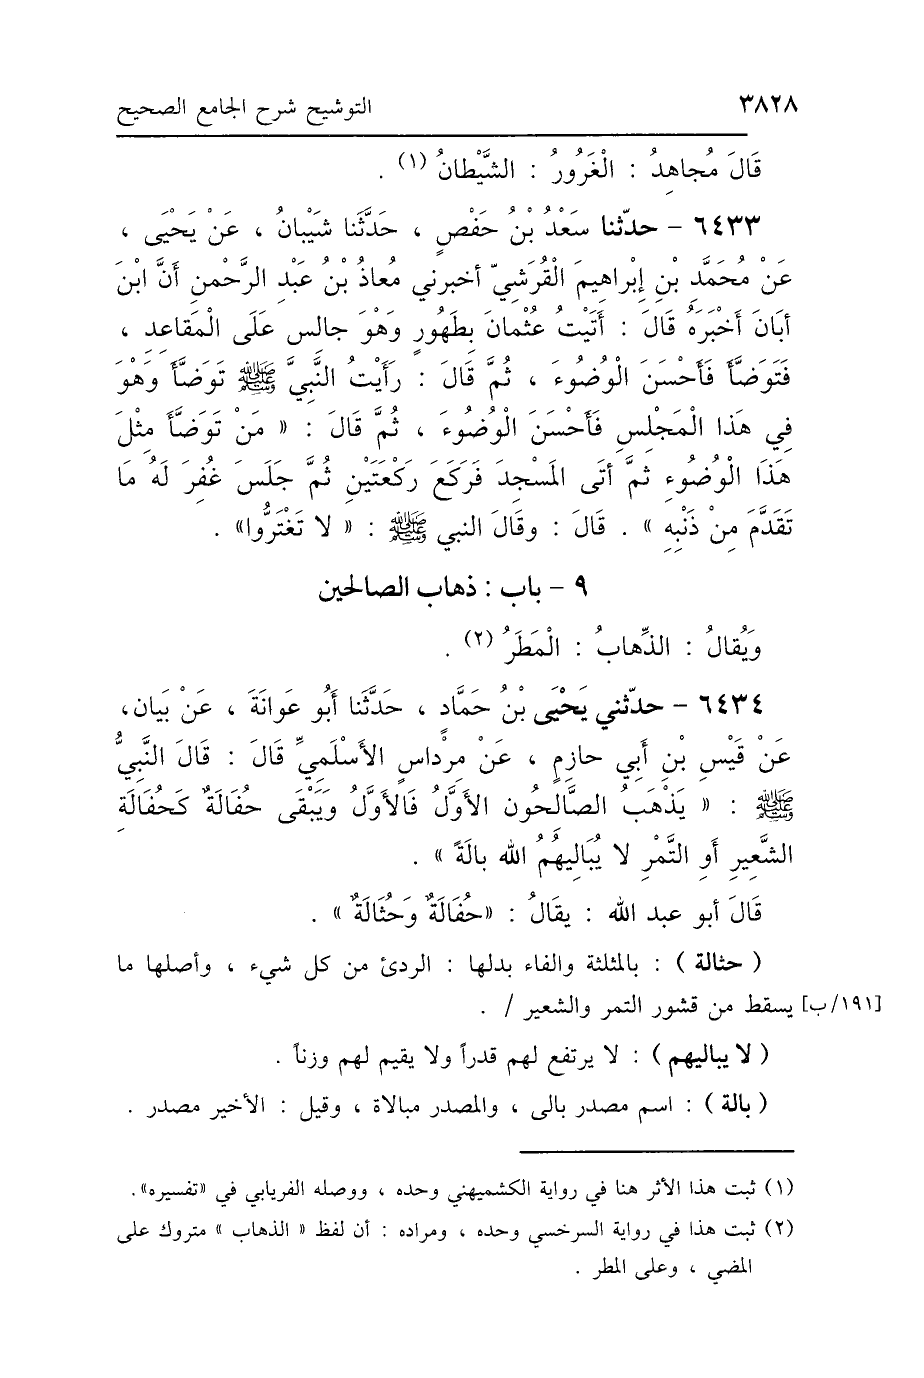 ٣٨٢٨ التوشيح شرح الجامع الصحيح
قَالَ مُجاهِدُ : الْغَرُورُ : الشَّيْطانُ (١) .
٦٤٣٣ - حدّثنا سَعْدُ بْنُ حَفْصٍ ، حَدَّثَنا شَيْبانُ ، عَنْ يَحْيَى ،
عَنْ مُحَمَّدِ بْنِ إِبْراهِيمَ الْقُرَشِيّ أخبرني مُعاذُ بْنُ عَبْدِ الرَّحْمنِ أَنَّ ابْنَ
أبَانَ أَخْبَرَهُ قَالَ : أَتَيْتُ عُثْمانَ بِطَهُورٍ وَهْوَ جالِس عَلَى الْمَقاعدِ ،
فَتَوَضَّأَ فَأَحْسَنَ الْوُضُوءَ ، ثُمَّ قَالَ : رَأَيْتُ النَّبيَّ ﷺ تَوَضَّأَ وَهْوَ
فِي هَذا الْمَجْلِسِ فَأَحْسَنَ الْوُضُوءَ ، ثُمَّ قَالَ : « مَنْ تَوَضَّأَ مثْلَ
هَذَا الْوُضُوءِ ثمَّ أتَى المَسْجدَ فَرَكَعَ رَكْعَتَيْنِ ثُمَّ جَلَسَ غُفِرَ لَهُ مَا
تَقَدَّمَ مِنْ ذَنْبِهِ » . قَالَ : وقَالَ النبي ﷺ : « لا تَغْتَرُّوا» .
٩ - باب : ذهاب الصالحين
وَيُقالُ : الذِّهابُ : الْمَطَرُ (٢) .
٦٤٣٤ - حدّثني يَحْيَى بْنُ حَمَّادٍ ، حَدَّثَنا أَبُو عَوانَةَ ، عَنْ بَيان،
عَنْ قَيْسِ بْنِ أَبِي حازِمٍ ، عَنْ مرْداسٍ الأَسْلَمِيِّ قَالَ : قَالَ النَّبِيُّ
ﷺ : « يَذْهَبُ الصَّالحُون الأوَّلُ فَالأوَّلُ وَيَبْقَى حُفَالَةٌ كَحُفَالَةِ
الشَّعِيرِ أَو التَّمْرِ لا يُبَاليهُمُ الله بالَةً » .
قَالَ أبو عبد الله : يقالُ : «حُفَالَةٌ وَحُثَالَةٌ » .
( حثالة ) : بالمثلثة والفاء بدلها : الردئ من كل شيء ، وأصلها ما
[١٩١/ب] يسقط من قشور التمر والشعير / .
( لا يباليهم ) : لا يرتفع لهم قدراً ولا يقيم لهم وزناً .
( بالة ) : اسم مصدر بالى ، والمصدر مبالاة ، وقيل : الأخير مصدر .
(١) ثبت هذا الأثر هنا في رواية الكشميهني وحده ، ووصله الفريابي في «تفسيره».
(٢) ثبت هذا في رواية السرخسي وحده ، ومراده : أن لفظ « الذهاب » متروك على
المضي ، وعلى المطر .